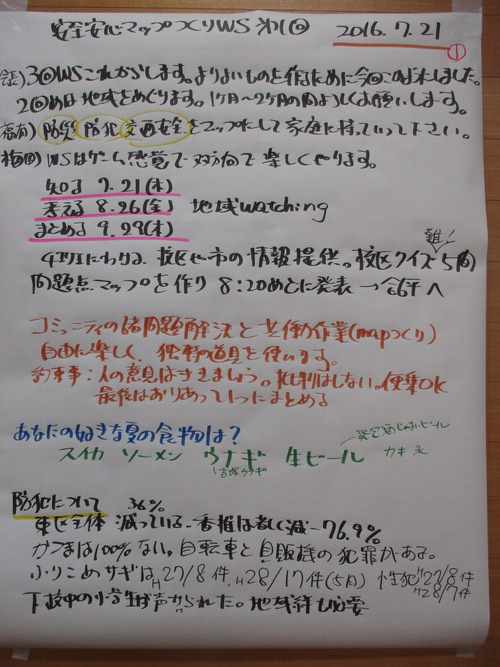 安全安心マップづくりWS 第1回
2016.7.21
①
会長)3回WSこれからします。よりよいものを作るために今回この様にしました。
2回目は地域をめぐります。1ヶ月〜2ヶ月の間よろしくお願いします。
防災 防犯 交通安全をマップにして家庭に持っていって下さい。
梅田)WSはゲーム感覚で双方向で楽しくやります。
知る 7.21(木)
考える 8.26(金) 地域watching
まとめる 9.29(木)
4班にわかれる 校区や市の情報提供。校区クイズ5問
難!
問題点マップを作り 8:20めどに発表→合評へ
コミュニティの諸問題解決と共働作業(mapづくり)
自由に楽しく、独特の道具を使います。
約束事:人の意見はききましょう。批判はしない。便乗OK
最後はおりあって1つにまとめる
あなたの好きな夏の食物は?
スイカ ソーメン ウナギ 生ビール カキ氷
防犯について 36%
東区全体 減っている 香椎は著しく減−76.9%
カギは100%ない。自転車と自販機の犯罪がある。
ふりこめサギはH27/8件、H28/17件(5月) 性犯H27/8件
H28/7件
下校中の小学生が声かけられた。地域絆も必要